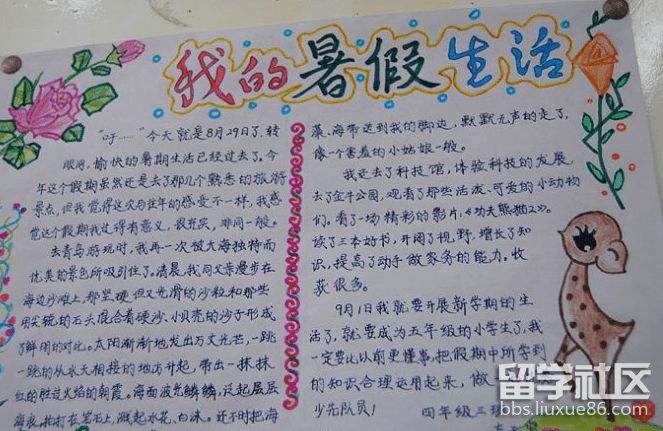 我的暑假生活
"吁……"今天就是8月29日了,转
眼间,愉快的暑期生活已经过去了。今
年这个假期虽然还是去了那几个熟悉的旅游
景点,但我觉得这次与往年的感受不一样,我感
觉这个假期我过得有意义、很充实,非同一般。
去青岛游玩时,我再一次被大海独特而
优美的景色所吸引住了。清晨,我同父亲漫步在
海边沙滩上,那坚硬但又光滑的沙粒和那些
用尖锐的石头混合着硬沙、小贝壳的沙子形成
了鲜明的对比。太阳渐渐地发出万丈光芒,一跳
一跳的从水天相接的地方升起,带出一抹抹
红的胜过火焰的朝霞。海面波光鳞鳞,泛起层层
海浪,拍打在岩石上,溅起水花、白沫。还不时把海
藻、海带送到我的脚边,默默无声的走了,
像一个害羞的小姑娘一般。
我还去了科技馆,体验科技的发展,
去了金牛公园,观看了那些活泼、可爱的小动物
们。看了一场精彩的影片,《功夫熊猫2》。
读了三本好书,开阔了视野,增长了知
识,提高了动手做家务的能力。收
获很多。
9月1日我就要开展新学期的生
活了,就要成为五年级的小学生了,我
一定要比以前更懂事,把假期中所学到
的知识合理运用起来,做
少先队员!
四年级三班
留学社区
bbs.liuxue86.com